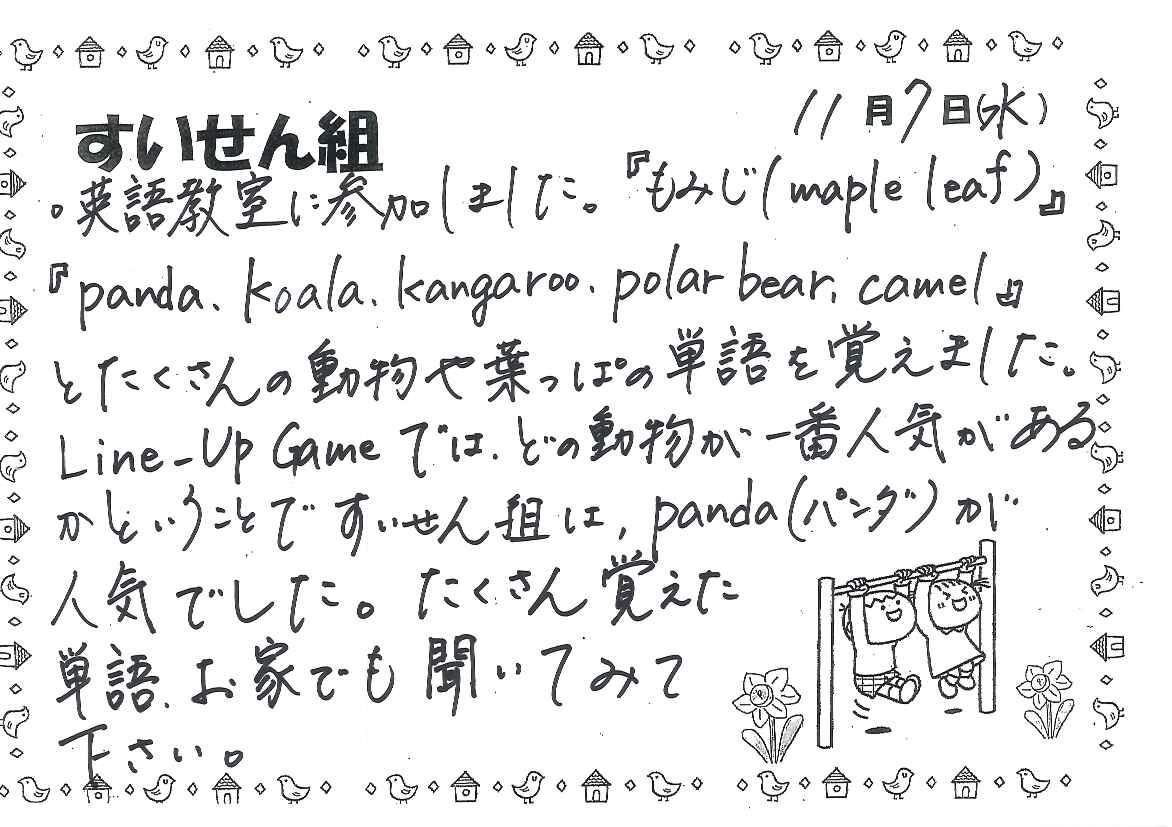 すいせん組
11月7日(水)
。英語教室に参加しました。『もみじ(maple leaf)』
『panda、koala、kangaroo、polar bear、camel』
とたくさんの動物や葉っぱの単語を覚えました。
Line-Up Gameでは、どの動物が一番人気がある
かということですいせん組は、panda(パンダ)が
人気でした。たくさん覚えた
単語、お家でも聞いてみて
下さい。